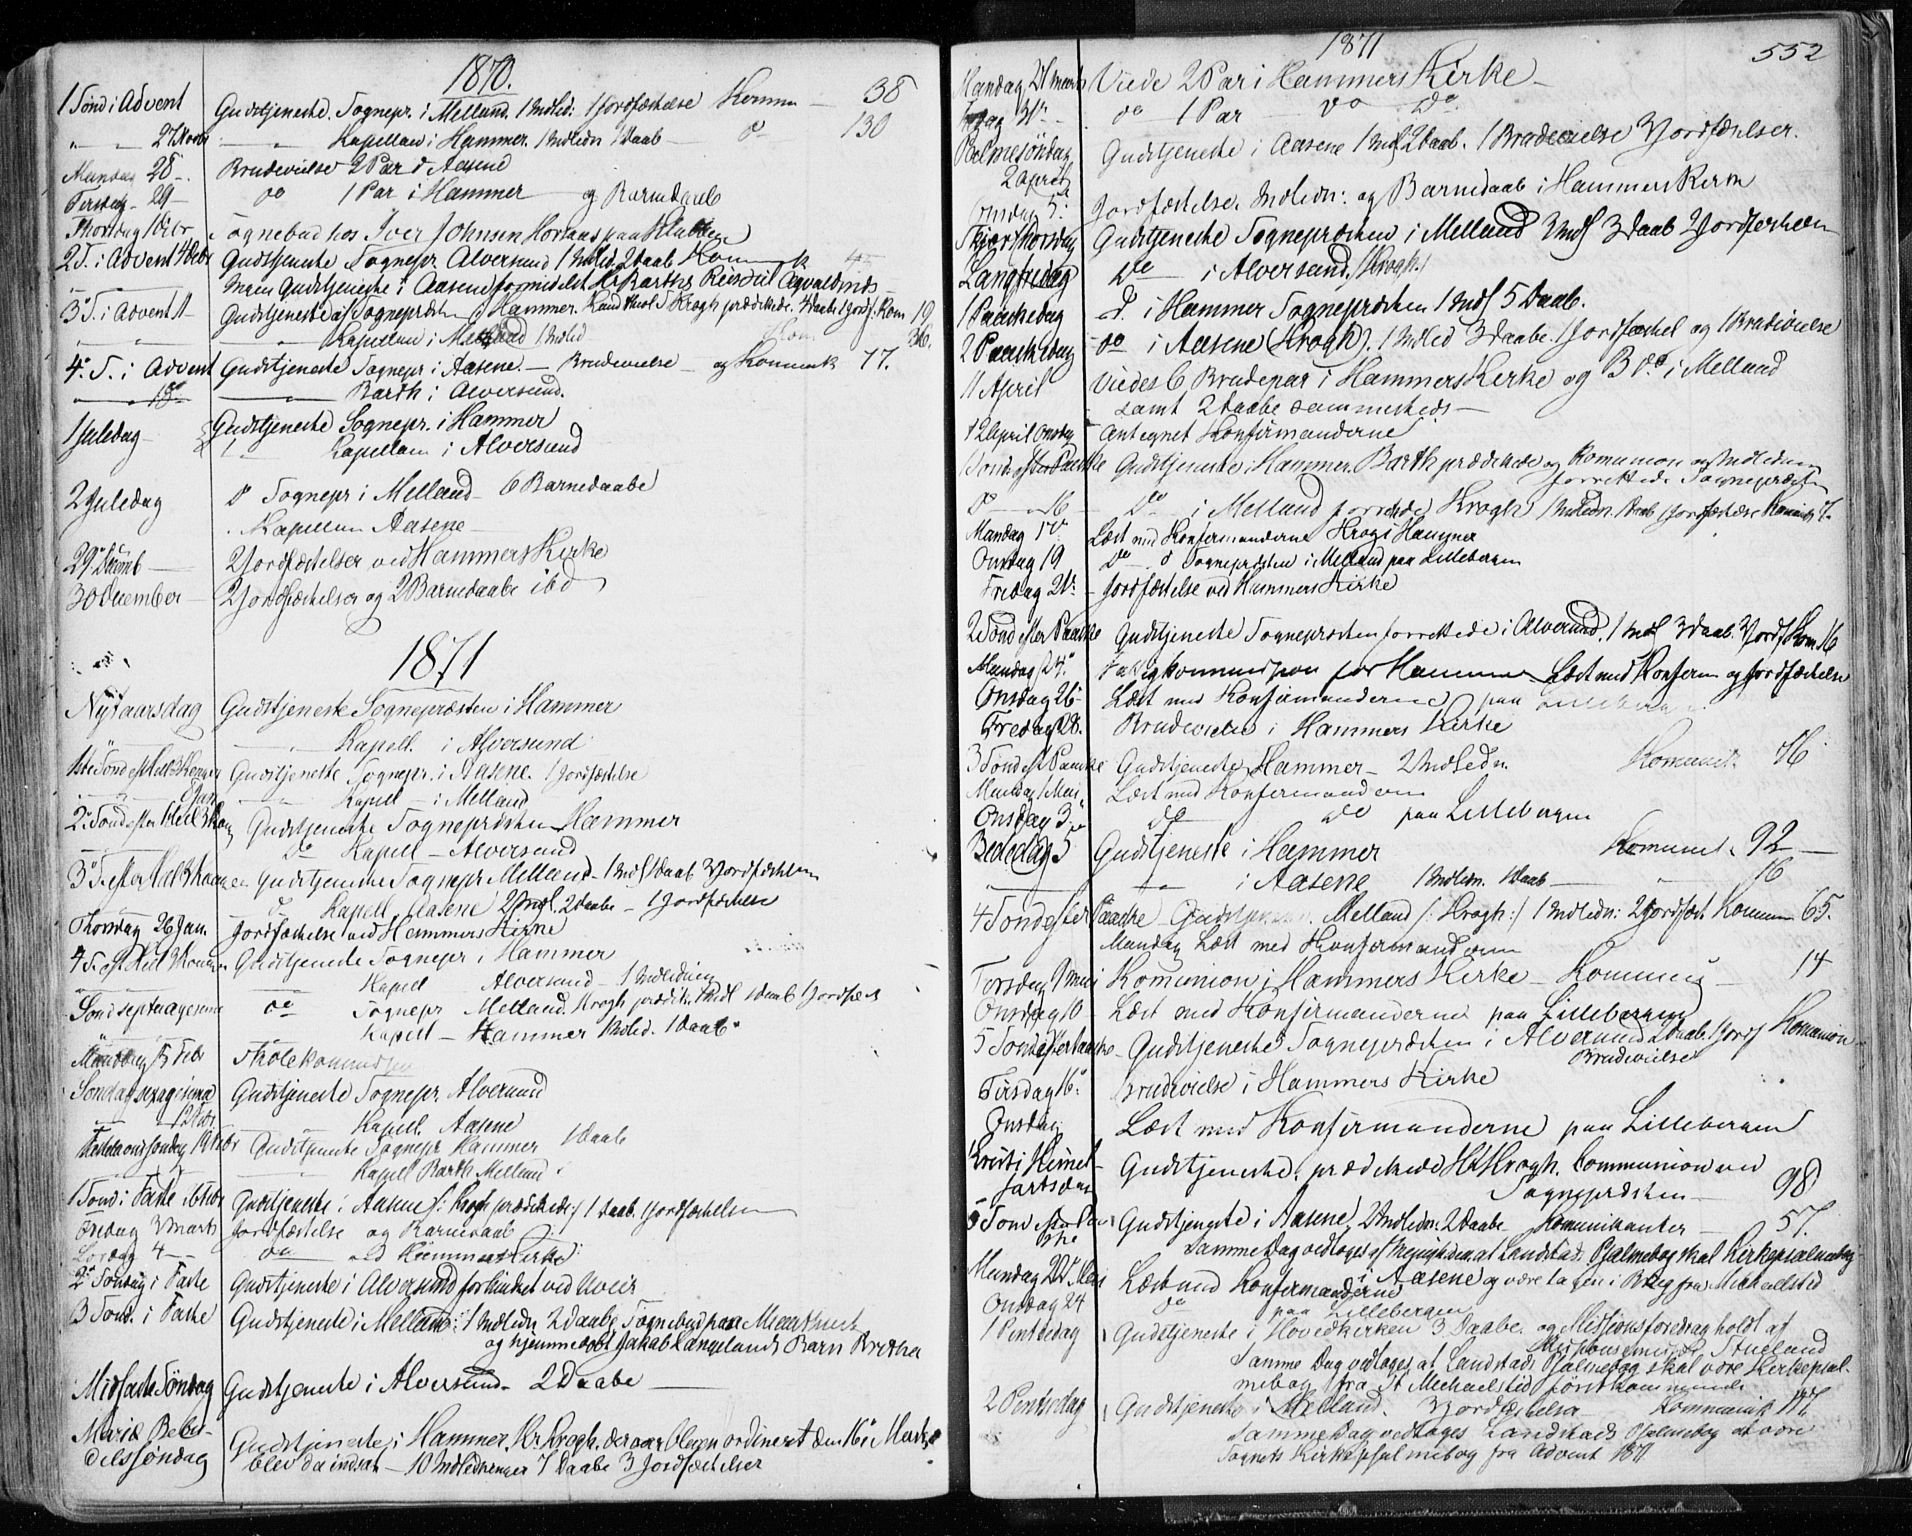 1870.
1 Sønd i Advent Gudstjeneste. Sognepr. i Melland. 1 Indled: 1 Jordfæstelse Komm — 38
27 Novbr Kapellan i Hammer. 1 Indledn 1 Daab — do — 130
Mandag 28 - Brudevielse 2 Par i Aasene
Tirsdag - 29 - do 1 Par i Hammer — og Barnedaab
Thorsdag 1 Decbr Sognebud hos Iver Johnsen Horsaas paa Klubben
2 S. i Advent 4 Decbr Gudstjeneste Sognepr Alversund 1 Indled. 2 Daab Kommunik
Ingen Gudstjeneste i Aasene formedelst Hr Barths Reise til
3 S. i Advent 11 Gudstjeneste af Sognepræsten i Hammer. Kand theol S Krogh prædikede. 4 Daabe 1 Jordf. Kom 19
Kapellan i Melland 1 Indled 36.
4. S. i Advent Gudstjeneste Sognepr i Aasene. — Brudevielse — og Kommunik 17.
18 — Barth i Alversund.
1 Juledag Gudstjeneste Sognepr. i Hammer
Kapellan i Alversund
2 Juledag do Sognepr i Melland — 6 Barnedaabe
Kapellan Aasene —
29 Decemb — 2 Jordfæstelser ved Hammers Kirke
30 December — 2 Jordfæstelser og 2 Barnedaabe ibd
1871
Nytaarsdag Gudstjeneste Sognepræsten i Hammer
Kapell. i Alversund
1ste Sønd eft Hell 3 Konger Gudstjeneste Sognepr. i Aasene. 1 Jordfæstelse
8 Jan Kapell i Melland
2 Sønd efter Hell 3 Kong Gudstjeneste Sognepræsten Hammer
do Kapell — Alversund
3 S. efter Hel 3 Konger Gudstjeneste Sognepr Melland — 1 Indl 1 Daab 3 Jordfæstelser
do Kapell Aasene 2 Indl. 2 Daabe — 1 Jordfæstelse
Thorsdag 26 Jan. Jordfæstelse ved Hammers Kirke
4 S. eft Hel 3 Konger Gudstjeneste Sognepr i Hammer
Kapell Alversund — 1 Indledning
Sønd septuagesima do Sognepr Melland. Krogh prædik. 1 Indl 1 Daab 1 Jordfæst
Kapell — Hammer 1 Indled. 1 Daab
Mandag Febr Skolekommission
Søndag sexagesima Gudstjeneste Sognepr. Alversund
12 Febr Kapell. Aasene
Fastelavnssøndag 19 Febr Gudstjeneste Sognepr Hammer 1 Daab
Kapell Barth Melland
1 Sønd i Faste 26 Febr Gudstjeneste i Aasene /: Krogh prædikede :/ 1 Daab. 1 Jordfæstelse
Fredag 3 Marts Jordfæstelse og Barnedaab
Lørdag 4 — do — ved Hammers Kirke
2 Søndag i Faste Gudstjeneste i Alversund forhindret ved Uveir
3 Sønd. i Faste Gudstjeneste i Melland: 1 Indledn 2 Daabe Sognebud paa
og hjemmedøbt Jakob Langelands Barn Brithe
Midfaste Søndag Gudstjeneste i Alversund — 2 Daabe —
Mariæ Bebu-
delsesøndag Gudstjeneste i Hammer, Hr. Krogh, der var bleven ordineret den 16 Marts
blev da indsat — 10 Indledninger 7 Daabe 3 Jordfæstelser
1871 552
Mandag 27 Marts Viede 2 Par i Hammers Kirke —
31 — do 1 Par do do
Palmesøndag Gudstjeneste i Aasene 1 Indl 2 Daab. 1 Brudevielse 3 Jordfæstelser.
2 April
Onsdag 5. Jordfæstelse. Indledn: og Barnedaab i Hammers Kirke
Skjærthorsdag Gudstjeneste Sognepræsten i Melland 3 Indl 3 Daab 2 Jordfæstelser
Langfredag do i Alversund. /Krogh/
1 Paaskedag do i Hammer Sognepræsten 1 Indl 5 Daab.
2 Paaskedag do i Aasene (Krogh). 1 Indled 3 Daabe. 1 Jordfæstel og 1 Brudevielse
11 April Viedes 6 Brudepar i Hammers Kirke og 3 do i Melland
samt 2 Daabe sammesteds —
12 April Onsdag antegnet Konfirmanderne
1 Sønd efter Paaske Gudstjeneste i Hammer. Barth prædikede og Komunion og Indledning
forrettede Sognepræsten
do 16 do i Melland forrettede Krogh 1 Indledn. 1 Daab 1 Jordfæstelse
Mandag 17 Læst med Konfirmanderne Krogh i Hammer
Onsdag 19 do do Sognepræsten i Melland paa Lillebergen
Fredag 21 Jordfæstelse ved Hammers Kirke
2 Sønd efter Paaske Gudstjeneste Sognepræsten forrettede i Alversund. 1 Indl 3 Daab. 3 Jordf Kom 16
Mandag 24. Fattigkommission for Hammer. Læst med Konfirm og Jordfæstelse
Onsdag 26 Læst med Konfirmanderne paa Lillebergen
Fredag 28. Brudevielse i Hammers Kirke
3 Sønd eft Paaske Gudstjeneste Hammer — 2 Indledn. Komunik. 76
Mandag 1 Mai Læst med Konfirmanderne
Onsdag 3. do do paa Lillebergen
Bededag 5 Gudstjeneste i Hammer Komunik. 92 —
i Aasene 1 Indledn. 1 Daab — 16
4 Sønd efter Paaske Gudstjeneste Melland /: Krogh :/ 1 Indledn: 2 Jordfæst Komun 65.
Mandag Læst med Konfirmanderne
Tirsdag 9 Mai Komunion i Hammers Kirke — Komunik — 14
Onsdag 10 Læst med Konfirmanderne paa Lillebergen
5 Sønd efter Paaske — Gudstjeneste Sognepræsten i Alversund 2 Daab. 1 Jordf Komunion
Brudevielse
Tirsdag 16 Brudevielse i Hammers Kirke
Onsdag Læst med Konfirmanderne paa Lillebergen
Kristi Himmel- Gudstjeneste. prædikede Hr Krogh. Communion ved
fartsdag Sognepræsten — 98
6 Sønd efter Paaske Gudstjeneste i Aasene, 2 Indledn. 2 Daabe Komunikanter — 57.
Samme Dag vedtoges af Menigheden at Landstads Psalmebog skal Kirkepsalmebog
i Aasene og være tagen i Brug fra Michaelstid
Mandag 22 Mai Læst med Konfirmanderne
Onsdag 24 do paa Lillebergen
1 Pintsedag Gudstjeneste i Hovedkirken 3 Daabe. og Missionsforedrag holdt af
Stueland
Samme Dag vedtoges at Landstads Psalmebog skal være Kirkepsal-
mebog fra St Michaelstid førstkommende
2 Pintsedag Gudstjeneste i Melland. 3 Jordfæstelser Kommunik
Samme Dag vedtoges Landstads Psalmebog at være
Sognets Kirkepsalmebog fra Advent 1871